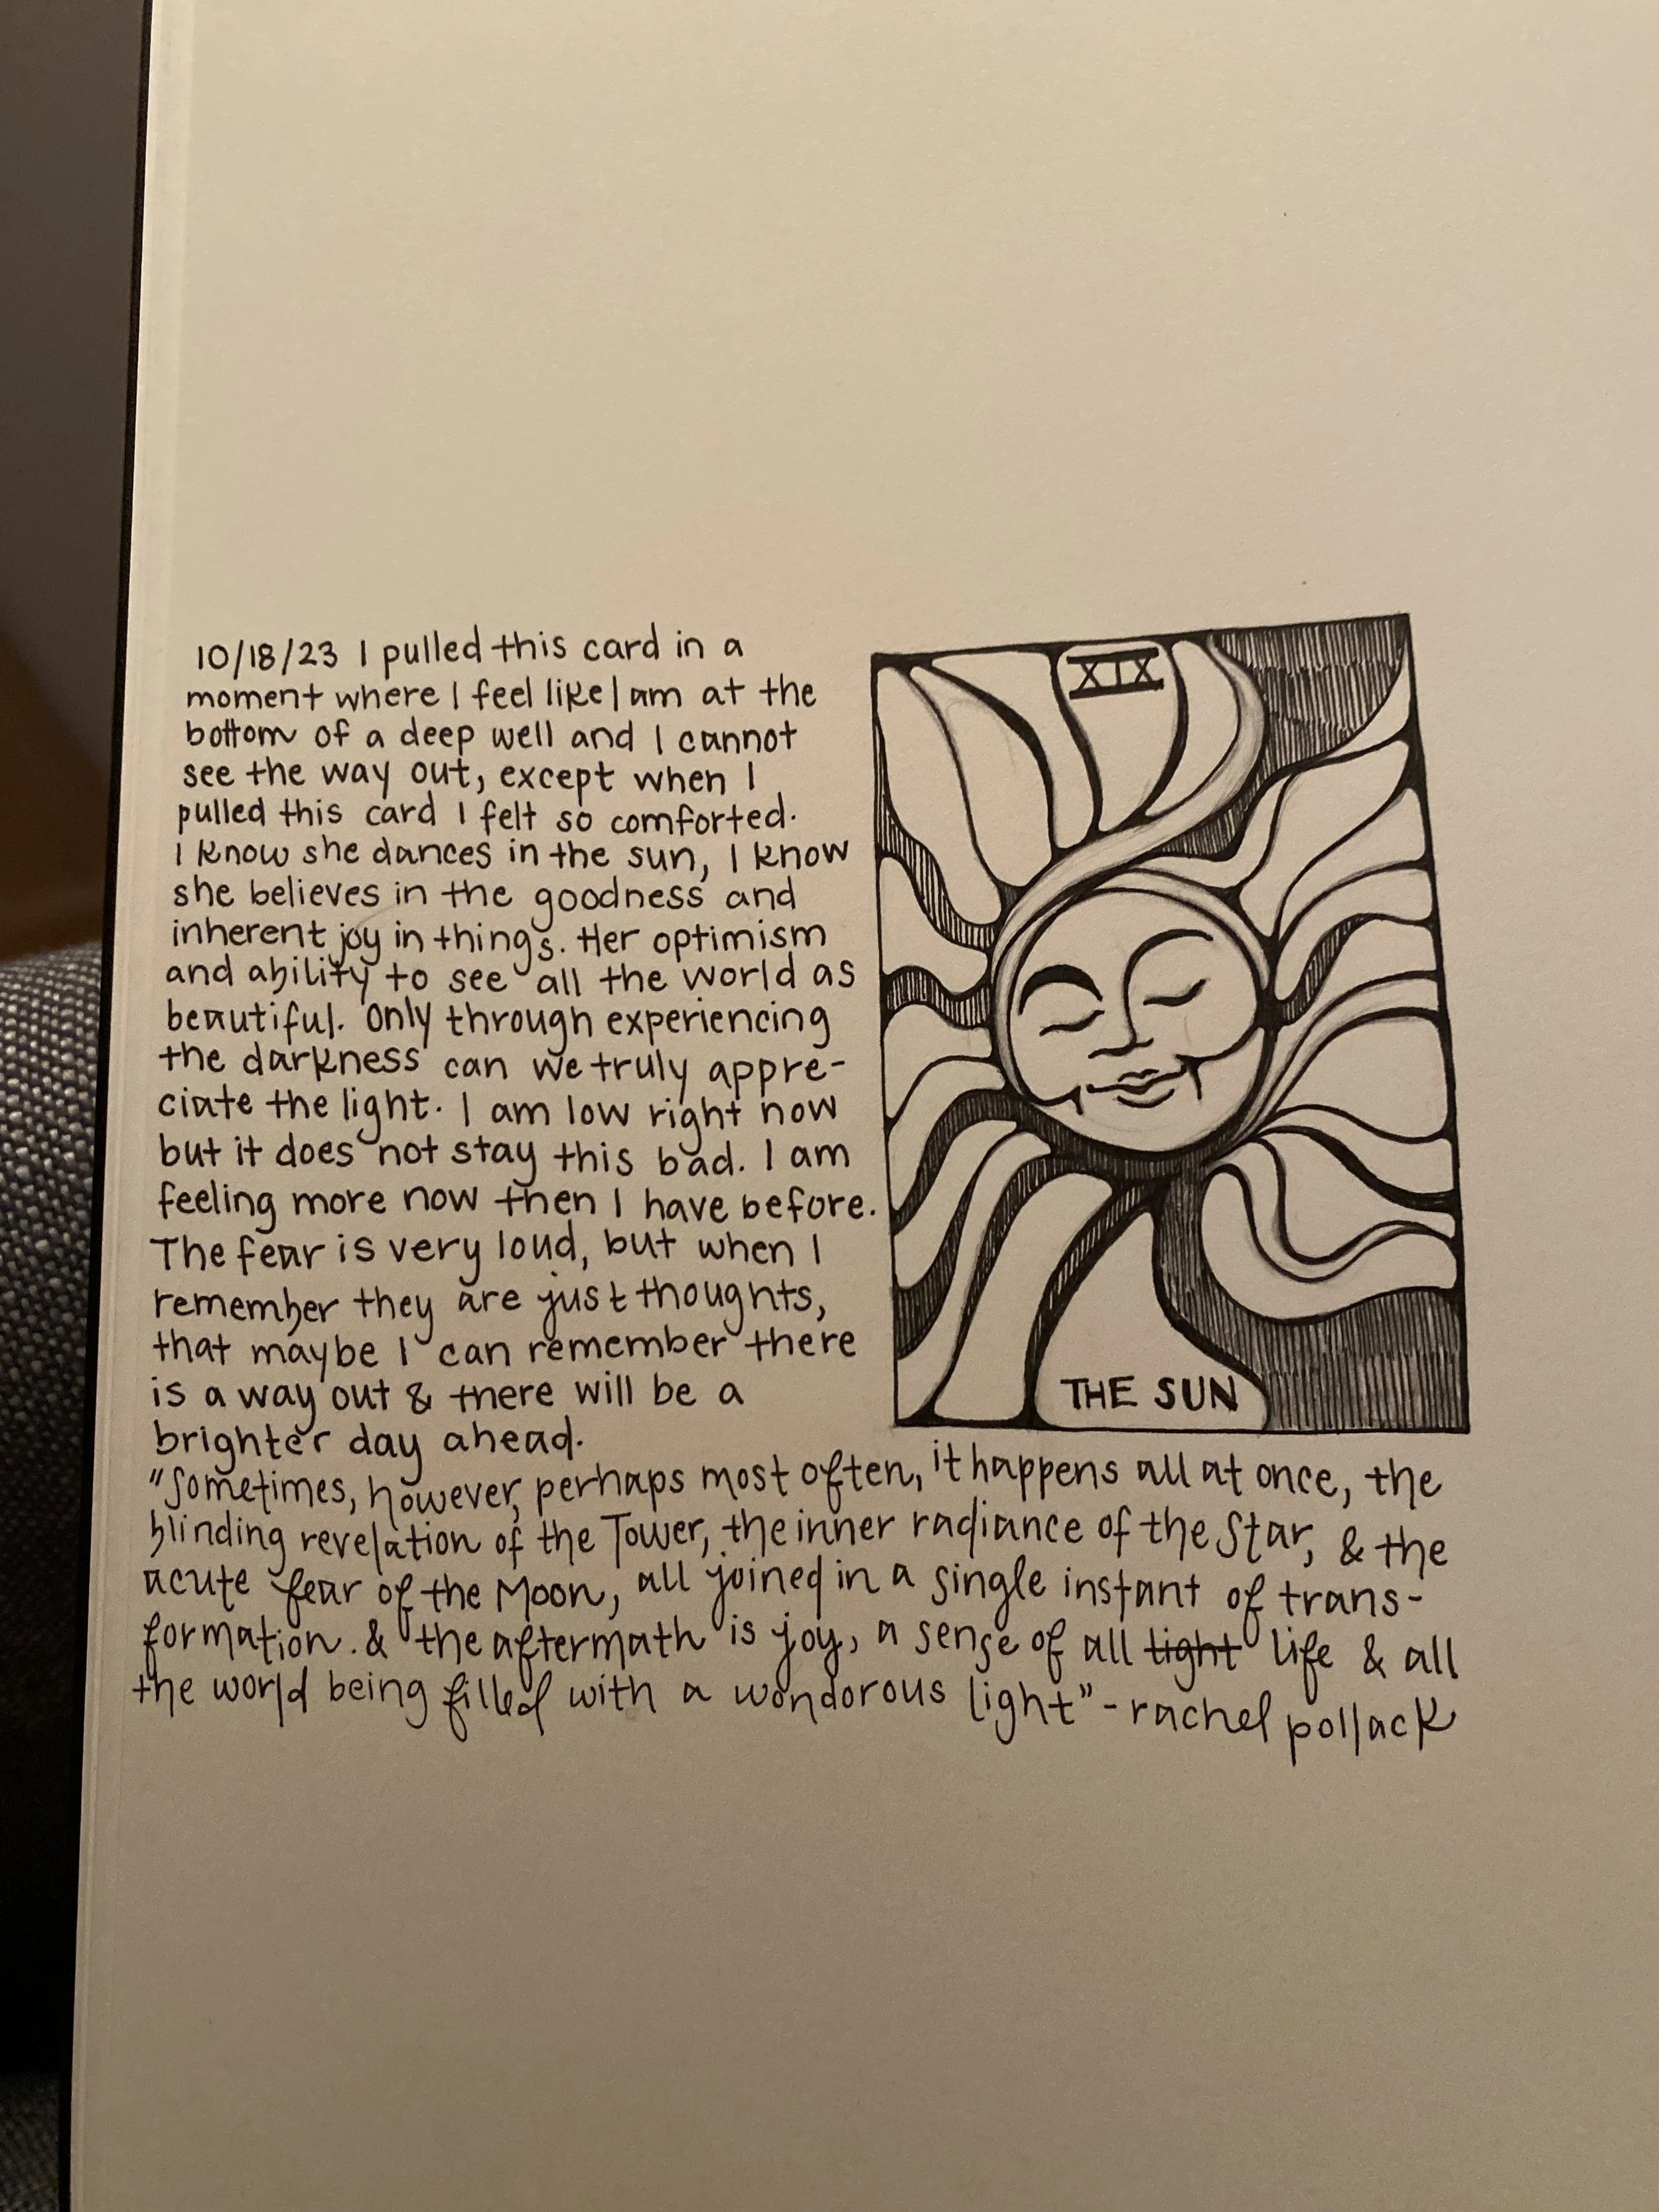 10/18/23 I pulled this card in a
moment where I feel like I am at the
bottom of a deep well and I cannot
see the way out, except when I
pulled this card I felt so comforted.
I know she dances in the sun, I know
she believes in the goodness and
inherent joy in things. Her optimism
and ability to see all the world as
beautiful. Only through experiencing
the darkness can we truly appre-
ciate the light. I am low right now
but it does not stay this bad. I am
feeling more now then I have before.
The fear is very loud, but when I
remember they are just thoughts,
that maybe I can remember there
is a way out & there will be a
brighter day ahead.
XIX
THE SUN
"Sometimes, however, perhaps most often, it happens all at once, the
blinding revelation of the Tower, the inner radiance of the Star, & the
acute fear of the Moon, all joined in a single instant of trans-
formation. & the aftermath is joy, a sense of all light life & all
the world being filled with a wondorous light" - rachel pollack